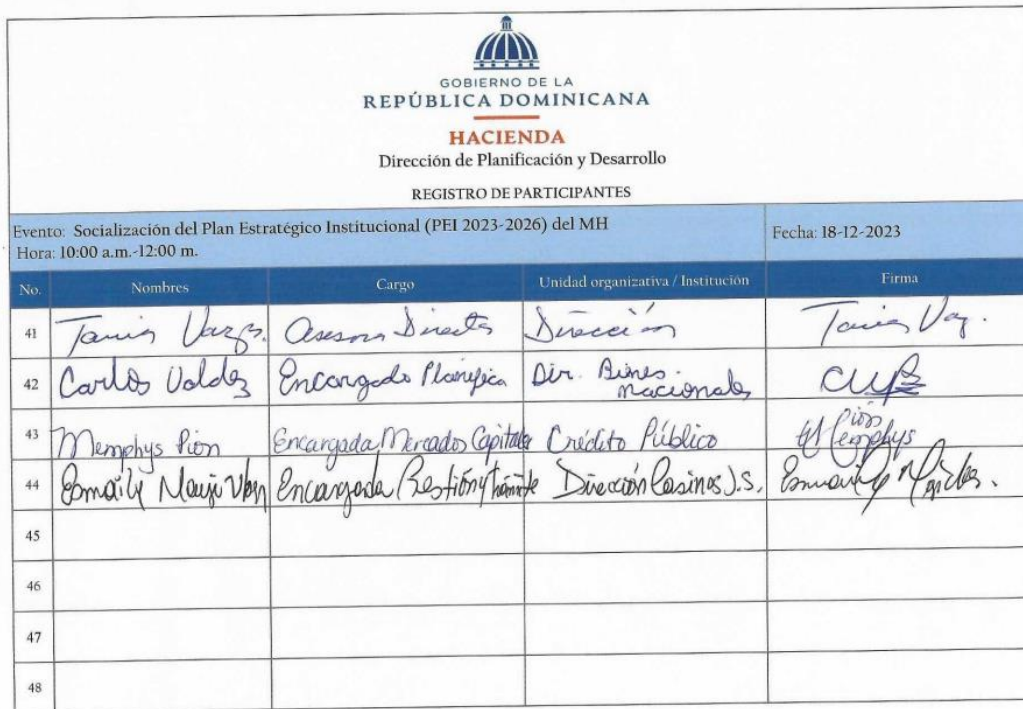 GOBIERNO DE LA
REPÚBLICA DOMINICANA
HACIENDA
Dirección de Planificación y Desarrollo
REGISTRO DE PARTICIPANTES
Evento: Socialización del Plan Estratégico Institucional (PEI 2023-2026) del MH
Hora: 10:00 a.m.-12:00 m.
Fecha: 18-12-2023
No. Nombres Cargo Unidad organizativa / Institución Firma
41 Tania Dirección Tania
42 Carlos Valdez Encargado Planifica Dir. Bines. nacionales
43 Memphys Pion Encargada Mercados Capitales Crédito Público Pion Memphys
44 Esmaily Encargada Gestión y trámite Dirección Casinos J.S. Esmaily
45
46
47
48